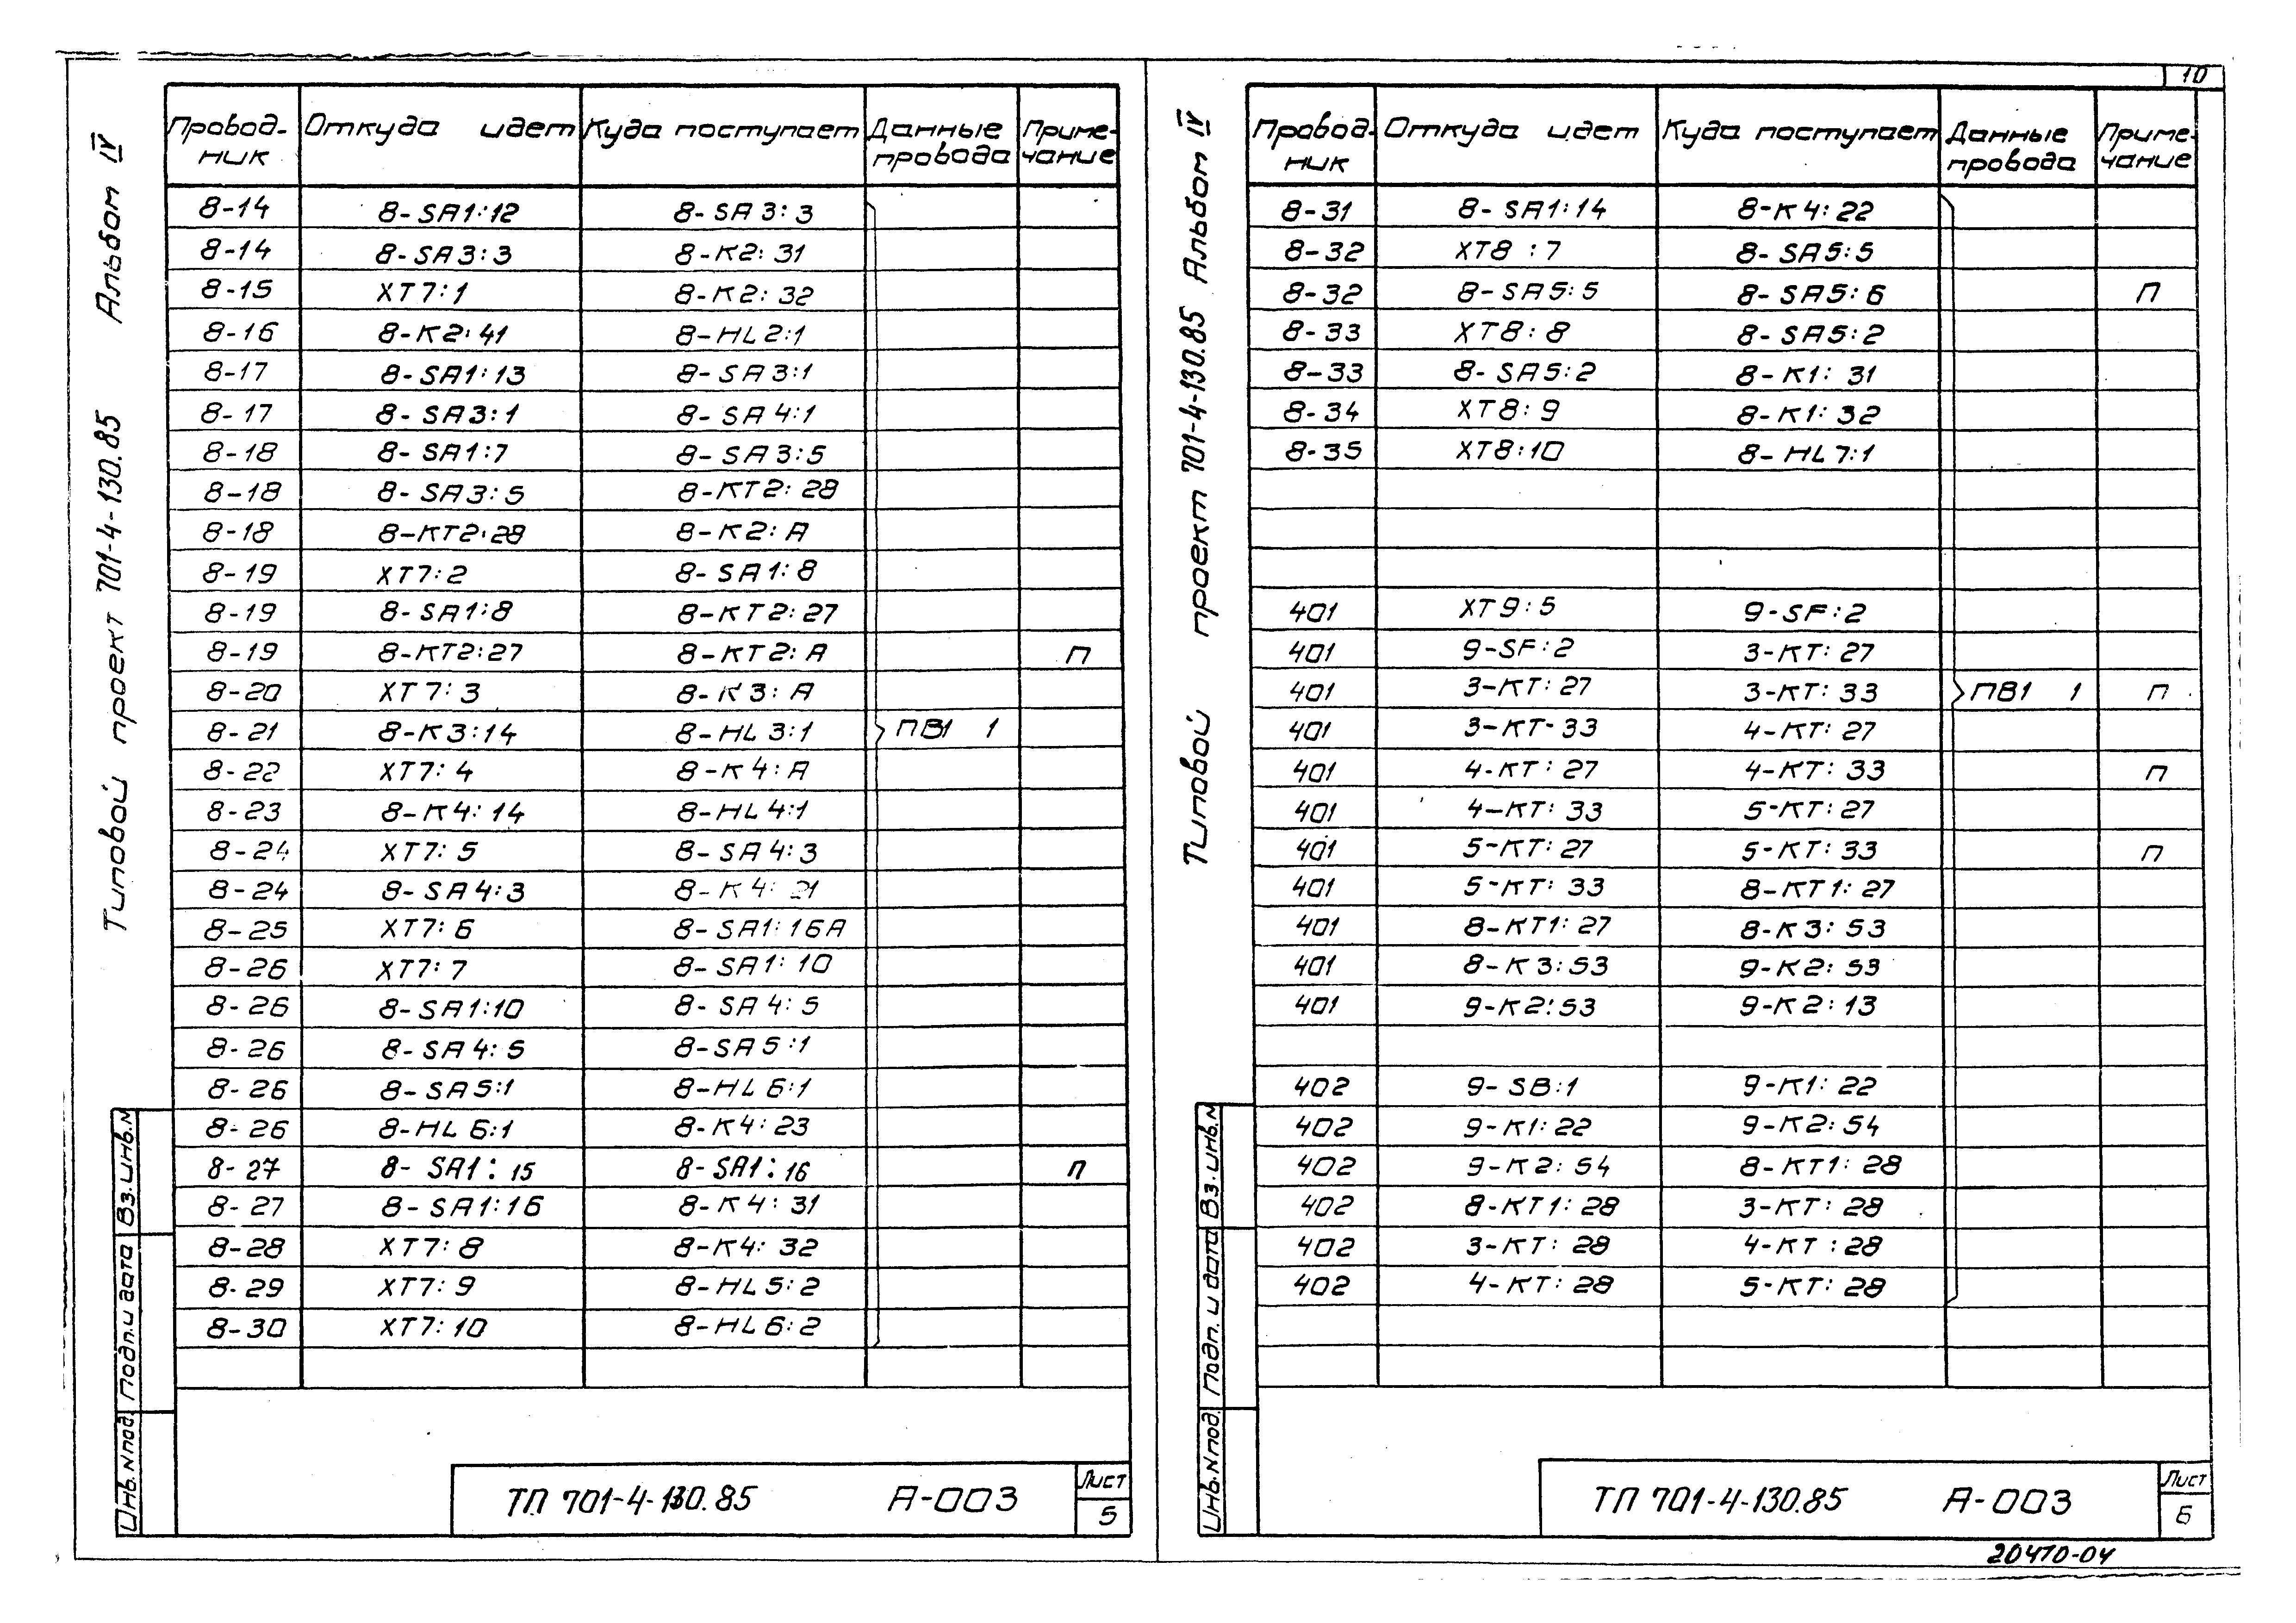 10
Типовой проект 701-4-130.85 Альбом IV
Провод-ник Откуда идет Куда поступает Данные провода Приме-чание
8-14 8-SA1:12 8-SA3:3
8-14 8-SA3:3 8-K2:31
8-15 XT7:1 8-K2:32
8-16 8-K2:41 8-HL2:1
8-17 8-SA1:13 8-SA3:1
8-17 8-SA3:1 8-SA4:1
8-18 8-SA1:7 8-SA3:5
8-18 8-SA3:5 8-KT2:28
8-18 8-KT2:28 8-K2:A
8-19 XT7:2 8-SA1:8
8-19 8-SA1:8 8-KT2:27
8-19 8-KT2:27 8-KT2:A П
8-20 XT7:3 8-K3:A
8-21 8-K3:14 8-HL3:1 ПВ1 1
8-22 XT7:4 8-K4:A
8-23 8-K4:14 8-HL4:1
8-24 XT7:5 8-SA4:3
8-24 8-SA4:3 8-K4:21
8-25 XT7:6 8-SA1:16A
8-26 XT7:7 8-SA1:10
8-26 8-SA1:10 8-SA4:5
8-26 8-SA4:5 8-SA5:1
8-26 8-SA5:1 8-HL6:1
8-26 8-HL6:1 8-K4:23
8-27 8-SA1:15 8-SA1:16 П
8-27 8-SA1:16 8-K4:31
8-28 XT7:8 8-K4:32
8-29 XT7:9 8-HL5:2
8-30 XT7:10 8-HL6:2
Инв.N под. Подп.и дата Вз.инв.N
ТП 701-4-130.85 А-003 Лист 5
Типовой проект 701-4-130.85 Альбом IV
Провод-ник Откуда идет Куда поступает Данные провода Приме-чание
8-31 8-SA1:14 8-K4:22
8-32 XT8:7 8-SA5:5
8-32 8-SA5:5 8-SA5:6 П
8-33 XT8:8 8-SA5:2
8-33 8-SA5:2 8-K1:31
8-34 XT8:9 8-K1:32
8-35 XT8:10 8-HL7:1
401 XT9:5 9-SF:2
401 9-SF:2 3-KT:27
401 3-KT:27 3-KT:33 ПВ1 1 П
401 3-KT-33 4-KT:27
401 4-KT:27 4-KT:33 П
401 4-KT:33 5-KT:27
401 5-KT:27 5-KT:33 П
401 5-KT:33 8-KT1:27
401 8-KT1:27 8-K3:53
401 8-K3:53 9-K2:53
401 9-K2:53 9-K2:13
402 9-SB:1 9-K1:22
402 9-K1:22 9-K2:54
402 9-K2:54 8-KT1:28
402 8-KT1:28 3-KT:28
402 3-KT:28 4-KT:28
402 4-KT:28 5-KT:28
Инв.N под. Подп. и дата Вз.инв.N
ТП 701-4-130.85 А-003 Лист 6
20470-04